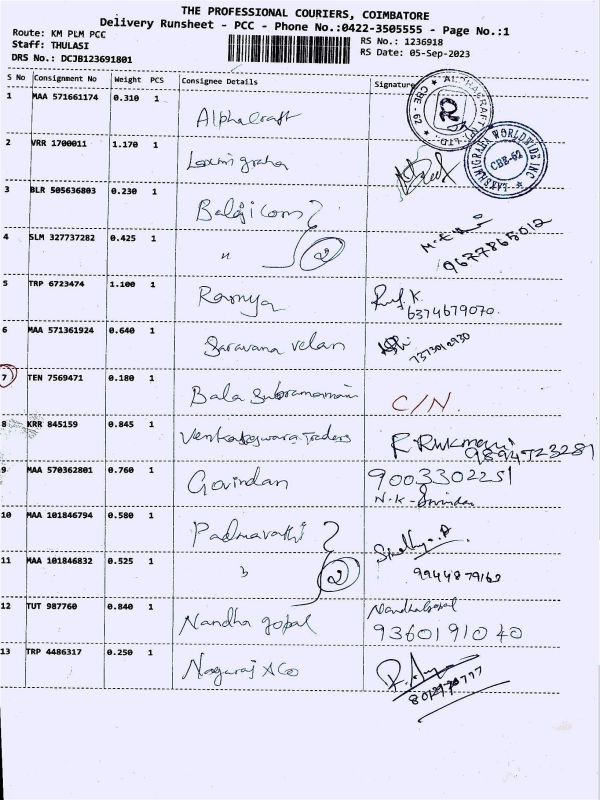 THE PROFESSIONAL COURIERS, COIMBATORE
Delivery Runsheet - PCC - Phone No.:0422-3505555 - Page No.:1
Route: KM PLM PCC
Staff: THULASI
DRS No.: DCJB123691801
RS No.: 1236918
RS Date: 05-Sep-2023
S No Consignment No Weight PCS Consignee Details Signature
1 MAA 571661174 0.310 1 Alphacraft
ALPHACRAFT (P) LTD CBE - 62
2 VRR 1700011 1.170 1 Laxmi graha
LAKSHMIGRAHA WORLDWIDE INC CBE-62
3 BLR 505636803 0.230 1 Balaji cons
4 SLM 327737282 0.425 1 " 2 9677868012
5 TRP 6723474 1.100 1 Ramya
6374679070
6 MAA 571361924 0.640 1 Saravana velan
7373012930
7 TEN 7569471 0.180 1 Bala Subramaniam C/N.
8 KRR 845159 0.845 1 Venkateswara Traders R. Rukmani
9894723281
9 MAA 570362801 0.760 1 Govindan 9003302251
N.K. Govindan
10 MAA 101846794 0.580 1 Padmavathi
11 MAA 101846832 0.525 1 " 2 9944879162
12 TUT 987760 0.840 1 Nandha gopal Nandhagopal
9360191040
13 TRP 4486317 0.250 1 Nagaraj & Co